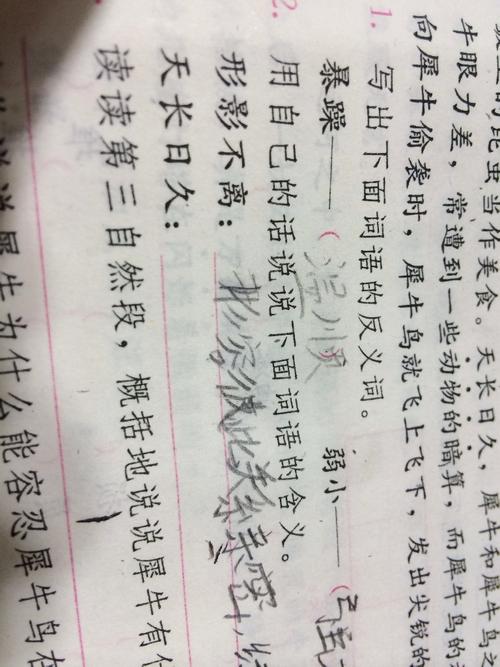 的昆虫当作美食。天长日久,犀牛和犀牛鸟
牛眼力差,常遭到一些动物的暗算,而犀牛鸟的
向犀牛偷袭时,犀牛鸟就飞上飞下,发出尖锐的
1. 写出下面词语的反义词。
暴躁——(温顺 弱小——(强大
2. 用自己的话说说下面词语的含义。
形影不离:形容彼此关系亲密,
天长日久:
读读第三自然段,概括地说说犀牛有什
说说犀牛为什么能容忍犀牛鸟在